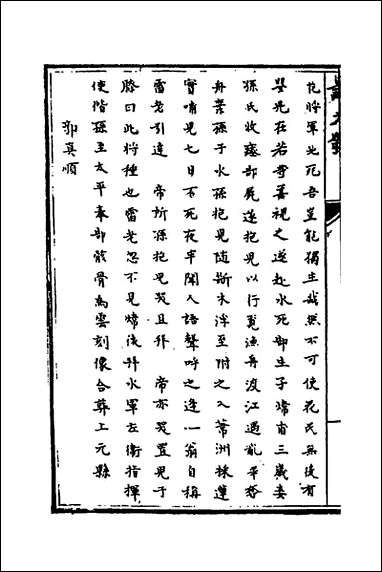 花將軍必死吾豈能獨生哉然不可使花氏無後有
嬰兒在若等善視之遂赴水死部生子煒甫三歲妾
孫氏收瘞部屍遂抱兒以行覓漁舟渡江過亂軍奪
舟棄孫子水孫抱兒隨斷木浮至附之入葦洲採蓮
實哺兒七日不死夜半聞人語聲呼之逢一翁自稱
雷老引達　帝所孫抱兒哭且拜　帝亦哭置兒于
膝曰此將種也雷老忽不見煒後升水軍左衛指揮
使偕孫至太平奉部骸骨馬雲刻像合葬上元縣
郭真順